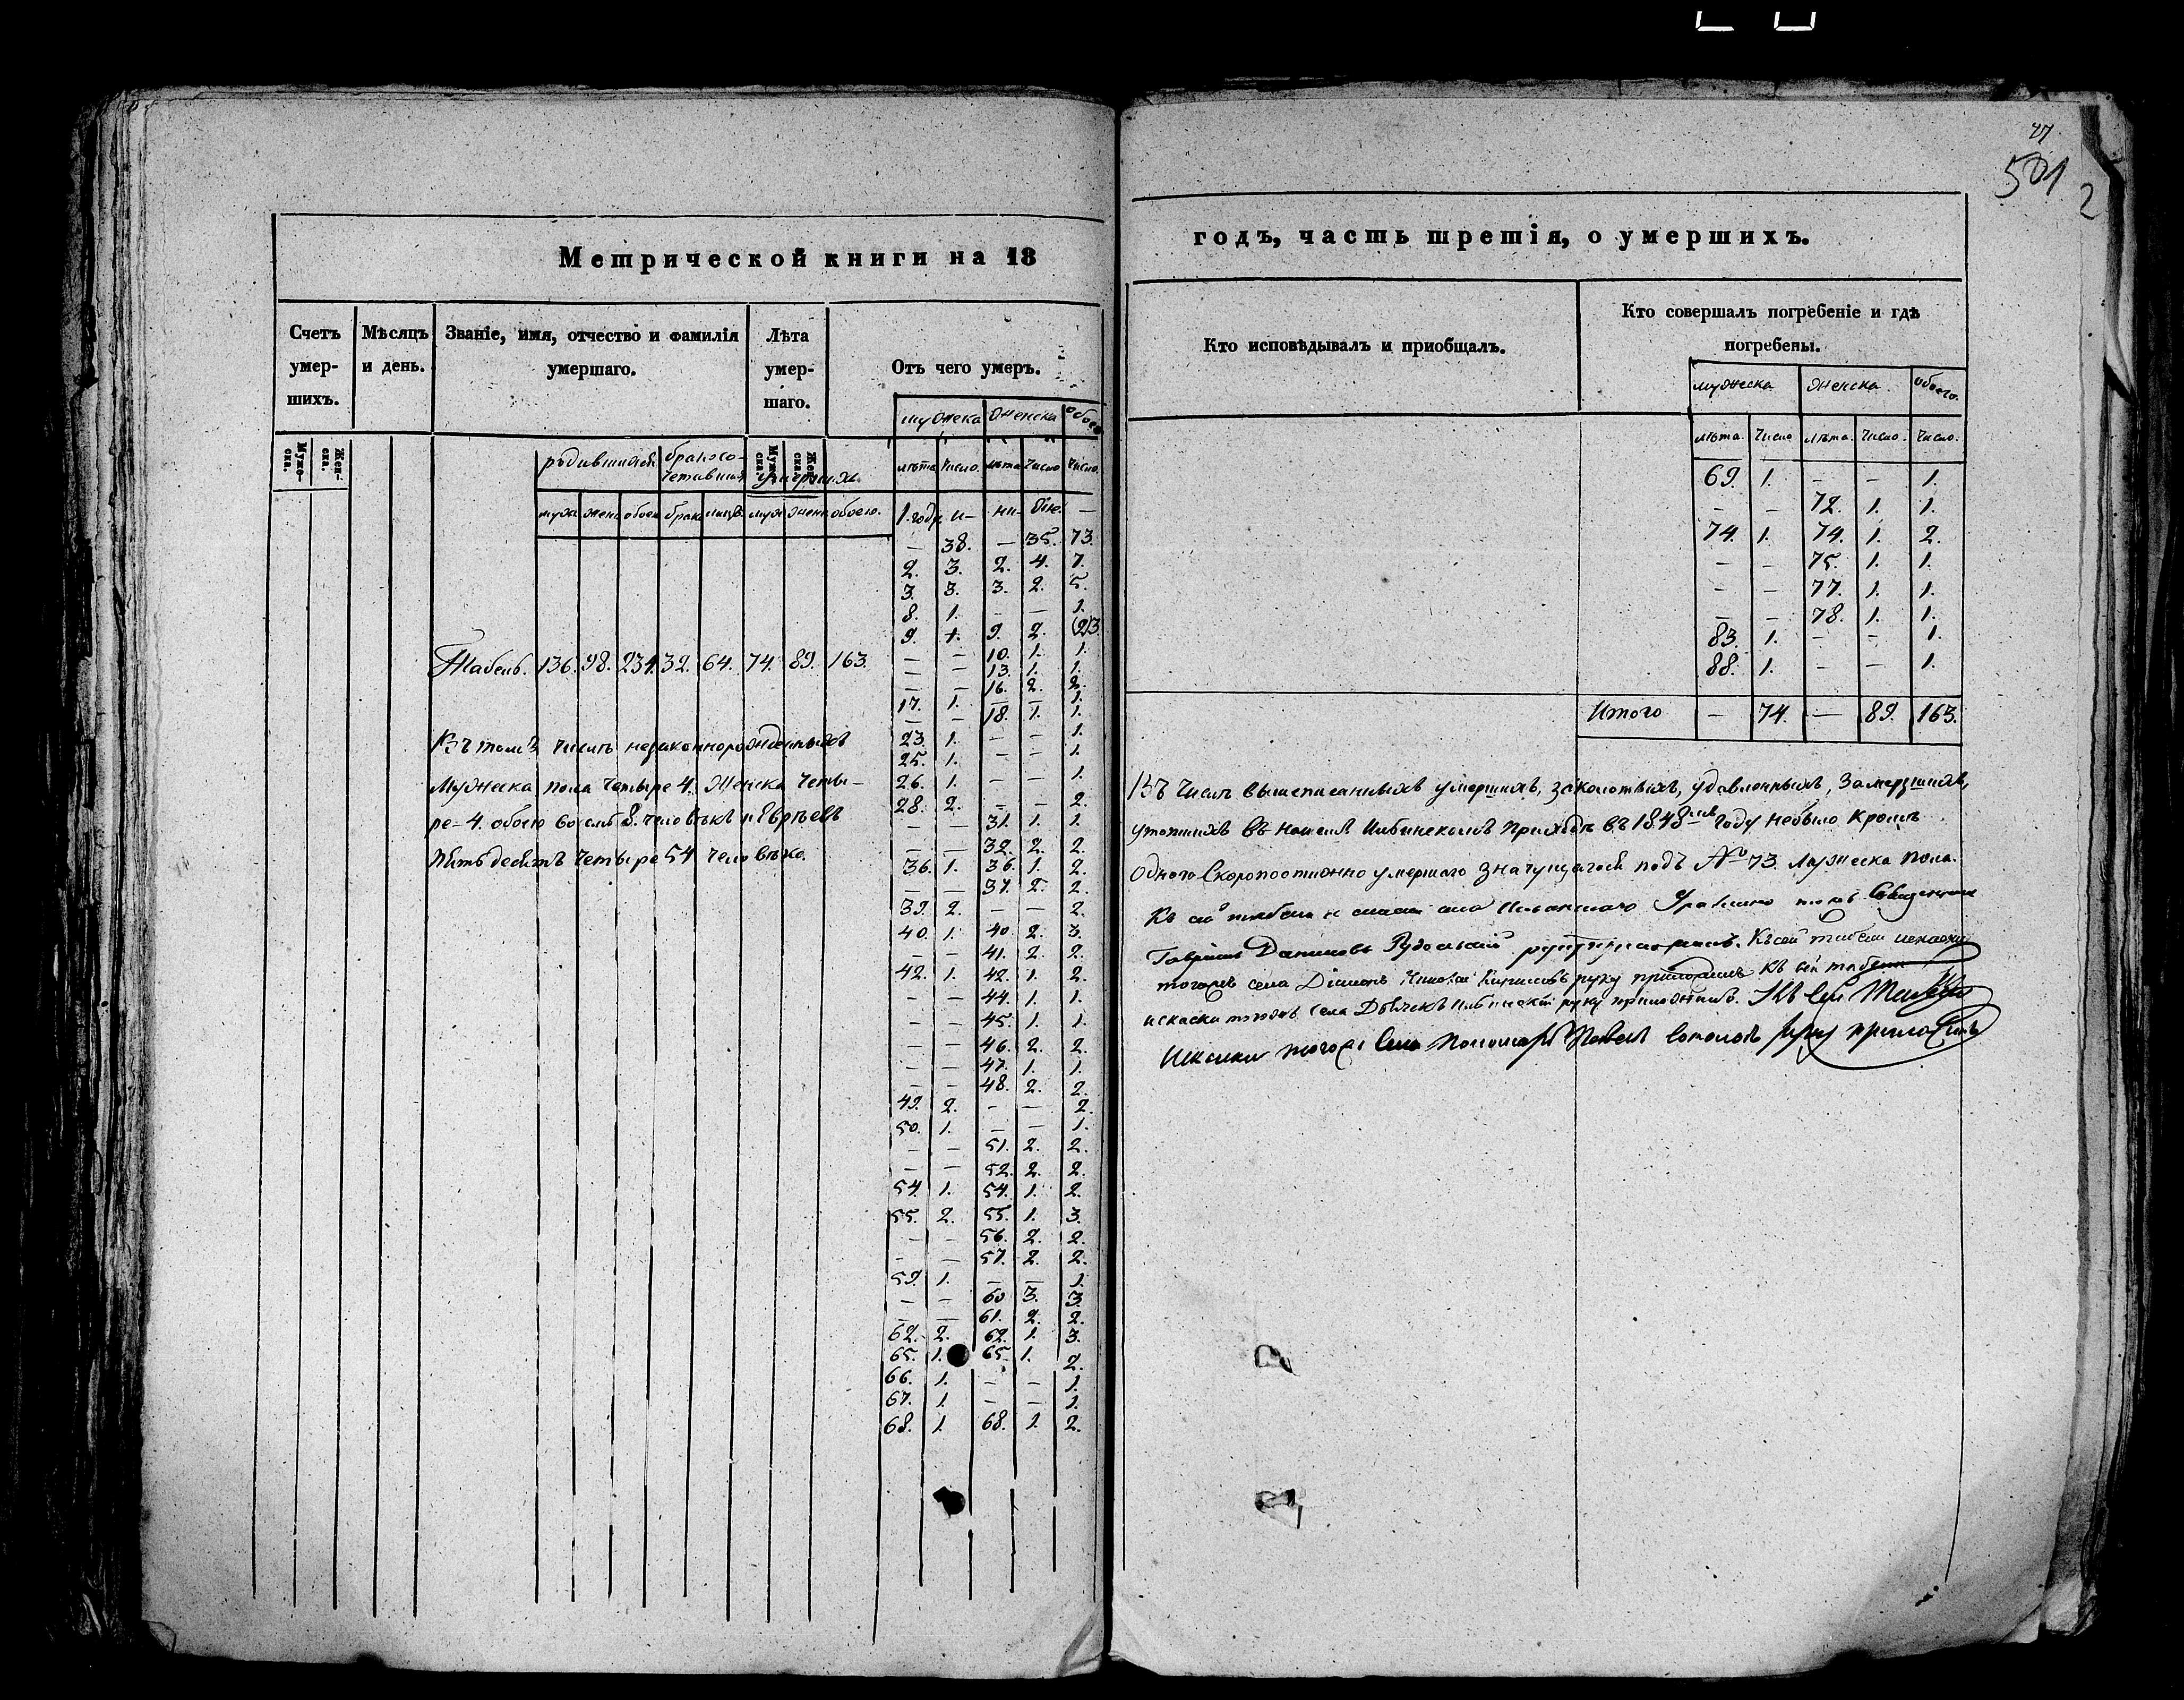 77
501
2
Метрической книги на 18
годъ, часть третія, о умершихъ.
Счетъ умер- шихъ.
Мѣсяцъ и день.
Званіе, имя, отчество и фамилія умершаго.
Лѣта умер- шаго.
Отъ чего умеръ.
Муже- ска.
Жен- ска.
Муже- ска.
Жен- ска.
родившихся
бракосо- четавших
умершихъ
муж. женс. обоего брак. лицъ. муж. женс. обоего.
мужска женска обоего
лѣта число. лѣта число число.
1. году и — ни- же. —
— 38. — 35. 73.
2. 3. 2. 4. 7.
3. 3. 3. 2. 5.
8. 1. — — 1.
9. 1. 9. 2. (2)3.
— — 10. 1. 1.
Табель. 136. 98. 234. 32. 64. 74. 89. 163.
— — 13. 1. 1.
— — 16. 2. 2.
17. 1. — — 1.
— — 18. 1. 1.
23. 1. — — 1.
25. 1. — — 1.
26. 1. — — 1.
28. 2. — — 2.
— — 31. 1. 1.
— — 32. 2. 2.
36. 1. 36. 1. 2.
— — 37. 2. 2.
39. 2. — — 2.
40. 1. 40. 2. 3.
— — 41. 2. 2.
42. 1. 42. 1. 2.
— — 44. 1. 1.
— — 45. 1. 1.
— — 46. 2. 2.
— — 47. 1. 1.
— — 48. 2. 2.
49. 2. — — 2.
50. 1. — — 1.
— — 51. 2. 2.
— — 52. 2. 2.
54. 1. 54. 1. 2.
55. 2. 55. 1. 3.
— — 56. 2. 2.
— — 57. 2. 2.
59. 1. — — 1.
— — 60 3. 3.
— — 61. 2. 2.
62. 2. 62. 1. 3.
65. 1. 65. 1. 2.
66. 1. — — 1.
67. 1. — — 1.
68. 1. 68. 1. 2.
Въ томъ числѣ незаконнорожденныхъ
Мужеска пола четыре 4. Женска четы-
ре- 4. обоего восемь 8. человѣкъ и Евреевъ
Пятьдесятъ четыре 54 человѣка.
Кто исповѣдывалъ и приобщалъ.
Кто совершалъ погребеніе и гдѣ погребены.
мужеска женска. обоего.
лѣта. число лѣта. число. число.
69. 1. — — 1.
— — 72. 1. 1.
74. 1. 74. 1. 2.
— — 75. 1. 1.
— — 77. 1. 1.
— — 78. 1. 1.
83. 1. — — 1.
88. 1. — — 1.
Итого — 74. — 89. 163.
Въ числѣ вышеписанныхъ умершихъ, заколотыхъ, удавленныхъ, замерзшихъ,
утопшихъ въ нашемъ приходѣ въ 1848мъ году небыло кромѣ
одного Скоропостижно умершаго значущагося подъ № 73. Мужеска пола.
Къ сей табели и села Священник
Гавріилъ Даниловъ руку приложилъ. Къ сей табели
тогожъ села Діаконъ руку приложилъ Къ сей табели
тогожъ села Дьячекъ руку приложилъ. Къ сей Табели
тогожъ Села Пономарь Павелъ руку приложилъ